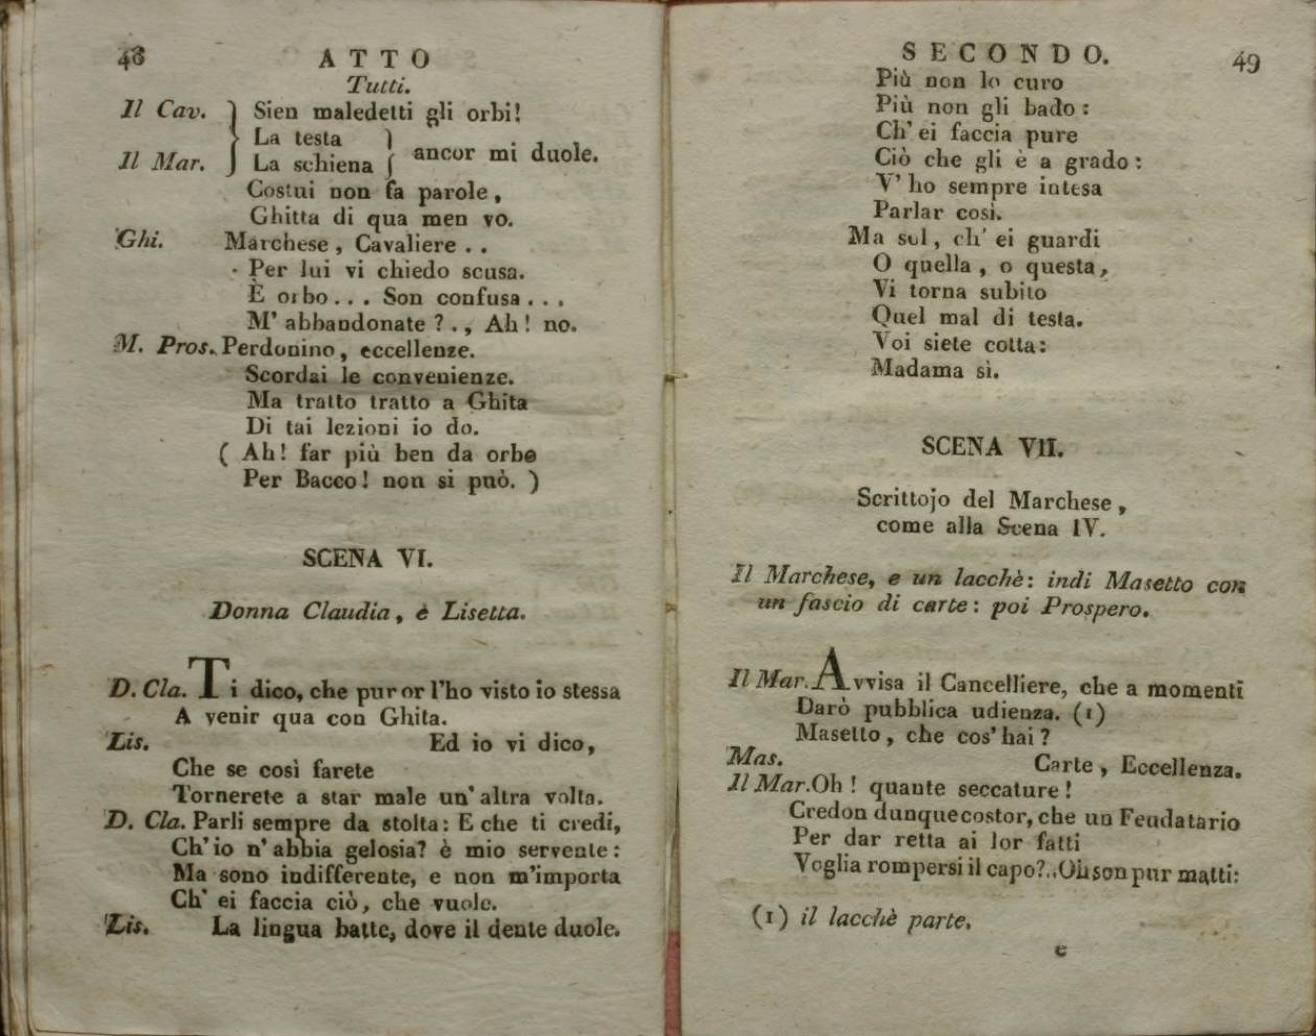 48
ATTO
Tutti.
Il Cav. } Sien maledetti gli orbi!
La testa }
Il Mar. } La schiena { ancor mi duole.
Costui non fa parole,
Ghitta di qua men vo.
Ghi. Marchese, Cavaliere . .
Per lui vi chiedo scusa.
È orbo... Son confusa...
M' abbandonate ? ., Ah! no.
M. Pros. Perdonino, eccellenze.
Scordai le convenienze.
Ma tratto tratto a Ghita
Di tai lezioni io do.
( Ah! far più ben da orbo
Per Bacco! non si può. )
SCENA VI.
Donna Claudia, è Lisetta.
D. Cla. Ti dico, che pur or l'ho visto io stessa
A venir qua con Ghita.
Lis. Ed io vi dico,
Che se così farete
Tornerete a star male un' altra volta.
D. Cla. Parli sempre da stolta: E che ti credi,
Ch' io n' abbia gelosia? è mio servente:
Ma sono indifferente, e non m'importa
Ch' ei faccia ciò, che vuole.
Lis. La lingua batte, dove il dente duole.
SECONDO.
49
Più non lo curo
Più non gli bado:
Ch' ei faccia pure
Ciò che gli è a grado:
V' ho sempre intesa
Parlar così.
Ma sol, ch' ei guardi
O quella, o questa,
Vi torna subito
Quel mal di testa.
Voi siete cotta:
Madama sì.
SCENA VII.
Scrittojo del Marchese,
come alla Scena IV.
Il Marchese, e un lacchè: indi Masetto con
un fascio di carte: poi Prospero.
Il Mar. Avvisa il Cancelliere, che a momenti
Darò pubblica udienza. (1)
Masetto, che cos' hai ?
Mas. Carte, Eccellenza.
Il Mar. Oh ! quante seccature !
Credon dunque costor, che un Feudatario
Per dar retta ai lor fatti
Voglia rompersi il capo?.. Oh son pur matti:
(1) il lacchè parte.
c